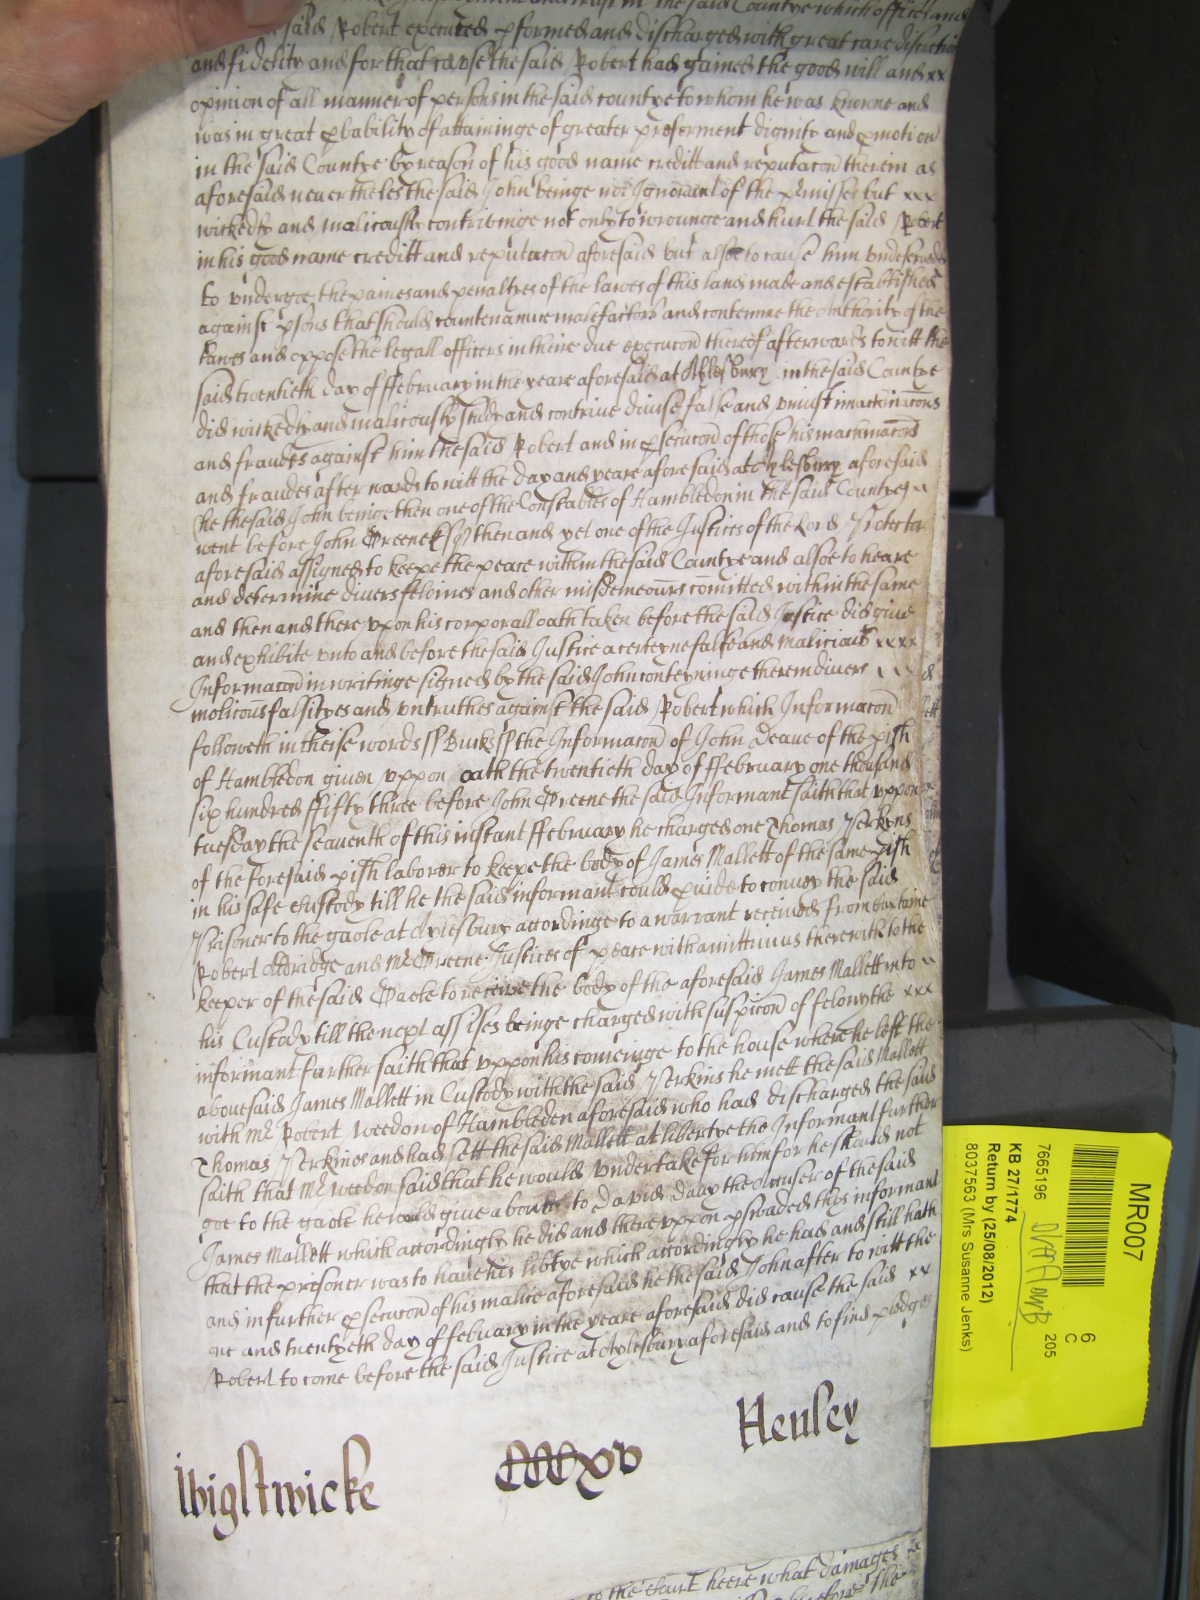 in the said Countye which offices and
said Robert executed pformed and discharged with great care discretion
and fidelity and for that cause the said Robert had gained the good will and xx
opinion of all manner of persons in the said countye to whom he was knowne and
was in great pbability of attaininge of greater preferment dignity and pmotion
in the said Countye by reason of his good name creditt and reputacon therein as
aforesaid never theles the said John beinge not Ignorant of the pmisses but xxx
wickedly and malicously contriveinge not only to wrounge and hurt the said Robert
in his good name creditt and reputacon aforesaid but alsoe to cause him undeservedly
to undergoe the paines and penaltyes of the lawes of this land made and established
against psons that should countenance malefactors and contemne the authority of the
lawes and oppose the legall officers in theire due execucon thereof afterwards to witt the
said twentieth day of ffebruary in the yeare aforesaid at Aylesbury in the said Countye
did wickedly and malicously study and contrive divrse false and uniust machinacons
and fraudes against him the said Robert and in psecucon of those his machinacons
and fraudes after wards to witt the day and yeare aforesaid at Aylesbury aforesaid
he the said John beinge then one of the Constables of Hambledon in the said Countye
went before John Greene Esq then and yet one of the Justices of the Lord Protector
aforesaid assigned to keepe the peace within the said Countye and alsoe to heare
and determine divers felonies and other misdemeours comitted within the same
and then and there upon his corporall oath taken before the said Justice did give
and exhibite unto and before the said Justice a certeyne false and malicious xxxx
Informacon in writinge signed by the said John conteyninge therein divers
malicous falsityes and untruthes against the said Robert which Informacon
followeth in theise words ss Bucks ss the Informacon of John Deane of the pish
of Hambledon given uppon oath the twentieth day of ffebruary one thousand
six hundred ffifty three before John Greene the said Informant saith that uppon
tuesday the seaventh of this instant ffebruary he charged one Thomas Perkins
of the foresaid pish laborer to keepe the body of James Mallett of the same pish
in his safe custody till he the said informant could pvide to convey the said
Prisoner to the gaole at Aylesbury accordinge to a warrant received from Captaine
Robert Aldridge and Mr Greene Justices of peace with a mittimus therewith to the
keeper of the said Gaole to receive the body of the aforesaid James Mallett into
his Custody till the next assises beinge charged with suspicon of felony the xxx
informant further saith that uppon his comeinge to the house where he left the
abovesaid James Mallett in Custody with the said Perkins he mett the said Mallett
with Mr Robert Weedon of Hambleden aforesaid who had discharged the said
Thomas Perkines and had sett the said Mallett at libertye the Informant further
saith that Mr Weedon said that he would undertake for him for he should not
goe to the gaole he would give a bound to David Davy the accuser of the said
James Mallett which accordingly he did and there uppon pswaded this informant
that the presoner was to have his libtye which accordingly he had and still hath
and in further psecucon of his malice aforesaid he the said John after to witt the
one and twentyeth day of ffebuary in the yeare aforesaid did cause the said xx
Robert to come before the said Justice at Aylesbury aforesaid and to find pledges
Wigstwicke
CCCxv
Henley
to the Court heere what damages
before the
MR007
7665196
6
C
205
KB 27/1774
Return by (25/08/2012)
8037563 (Mrs Susanne Jenks)